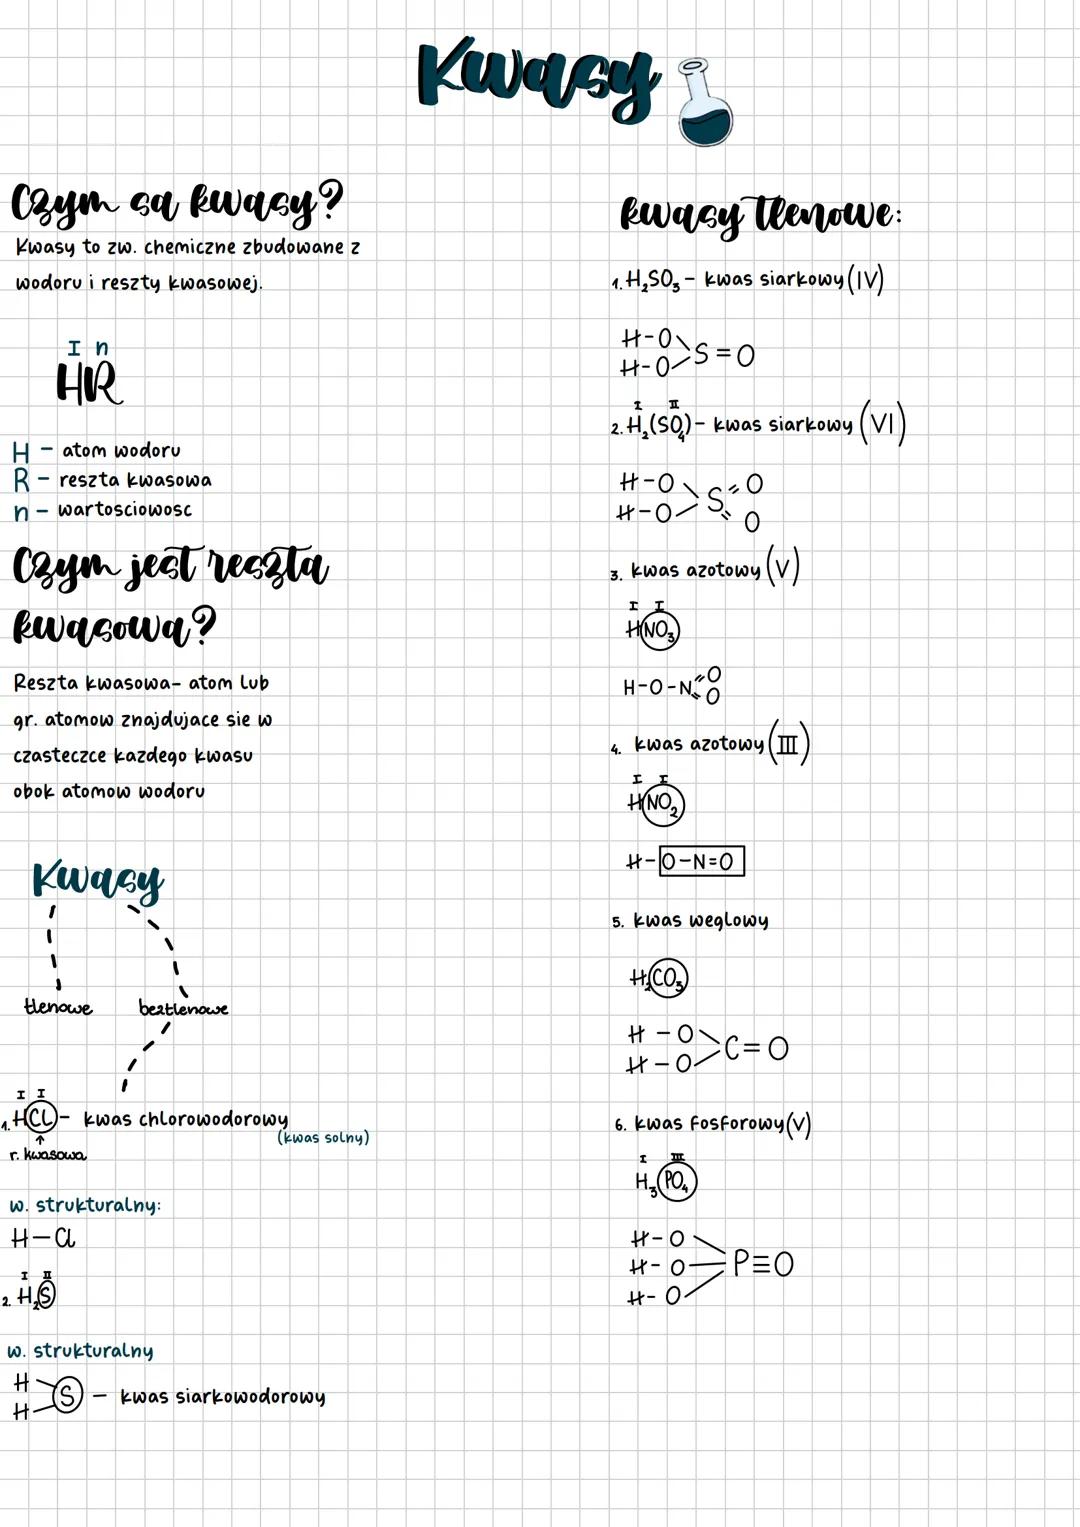 Kwasy
Czym są kwasy?
Kwasy to zw. chemiczne zbudowane z
wodoru i reszty kwasowej.
I n
HR
H - atom wodoru
R - reszta kwasowa
n - wartosciowosc
Czym jest reszta
kwasowa?
Reszta kwasowa- atom lub
gr. atomow znajdujace sie w
czasteczce kazdego kwasu
obok atomow wodoru
Kwasy
tlenowe beztlenowe
I I
1. HCl - kwas chlorowodorowy
(kwas solny)
↑
r. kwasowa
w. strukturalny:
H-Cl
I II
2. H₂S
w. strukturalny
H
S - kwas siarkowodorowy
H
kwasy tlenowe:
1. H₂SO₃ - kwas siarkowy (IV)
H-O
S=O
H-O
I II
2. H₂(SO₄) - kwas siarkowy (VI)
H-O O
S
H-O O
3. kwas azotowy (V)
I I
HNO₃
H-O-N=O
=O
4. kwas azotowy (III)
I I
HNO₂
H-O-N=O
5. kwas weglowy
H₂CO₃
H-O
C=O
H-O
6. kwas fosforowy (V)
I III
H₃PO₄
H-O
H-O-P≡O
H-O